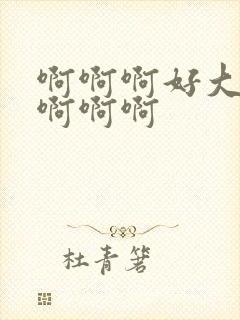 啊啊啊好大
啊啊啊
杜青箸